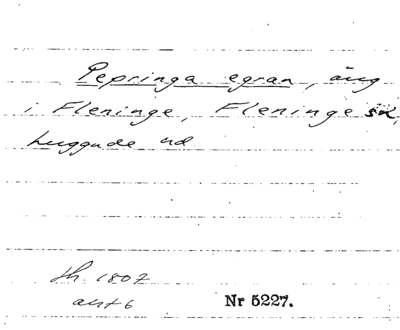 Pepringa egran, äng
i Fleninge, Fleninge sn,
Luggude hd
sh. 1807
akt 6
Nr 5227.